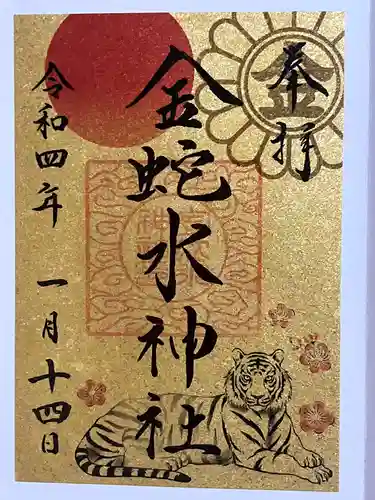 奉拝
金蛇水神社
令和四年 一月十四日